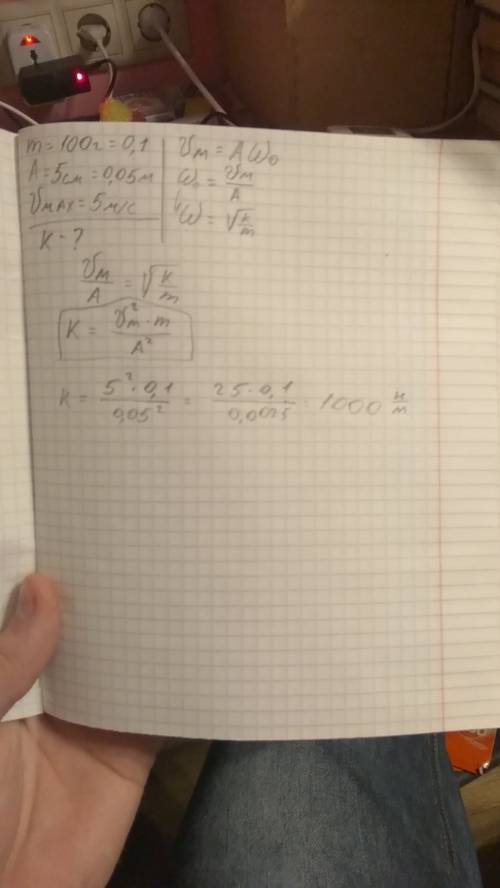 m = 100г = 0,1
A = 5см = 0,05м
υmax = 5 м/с
K - ?
υм = Aω₀
ω₀ = υм/A
ω = √(k/m)
υм/A = √(k/m)
K = υ²m · m / A²
K = 5² · 0,1 / 0,05² = 25 · 0,1 / 0,0025 = 1000 н/м